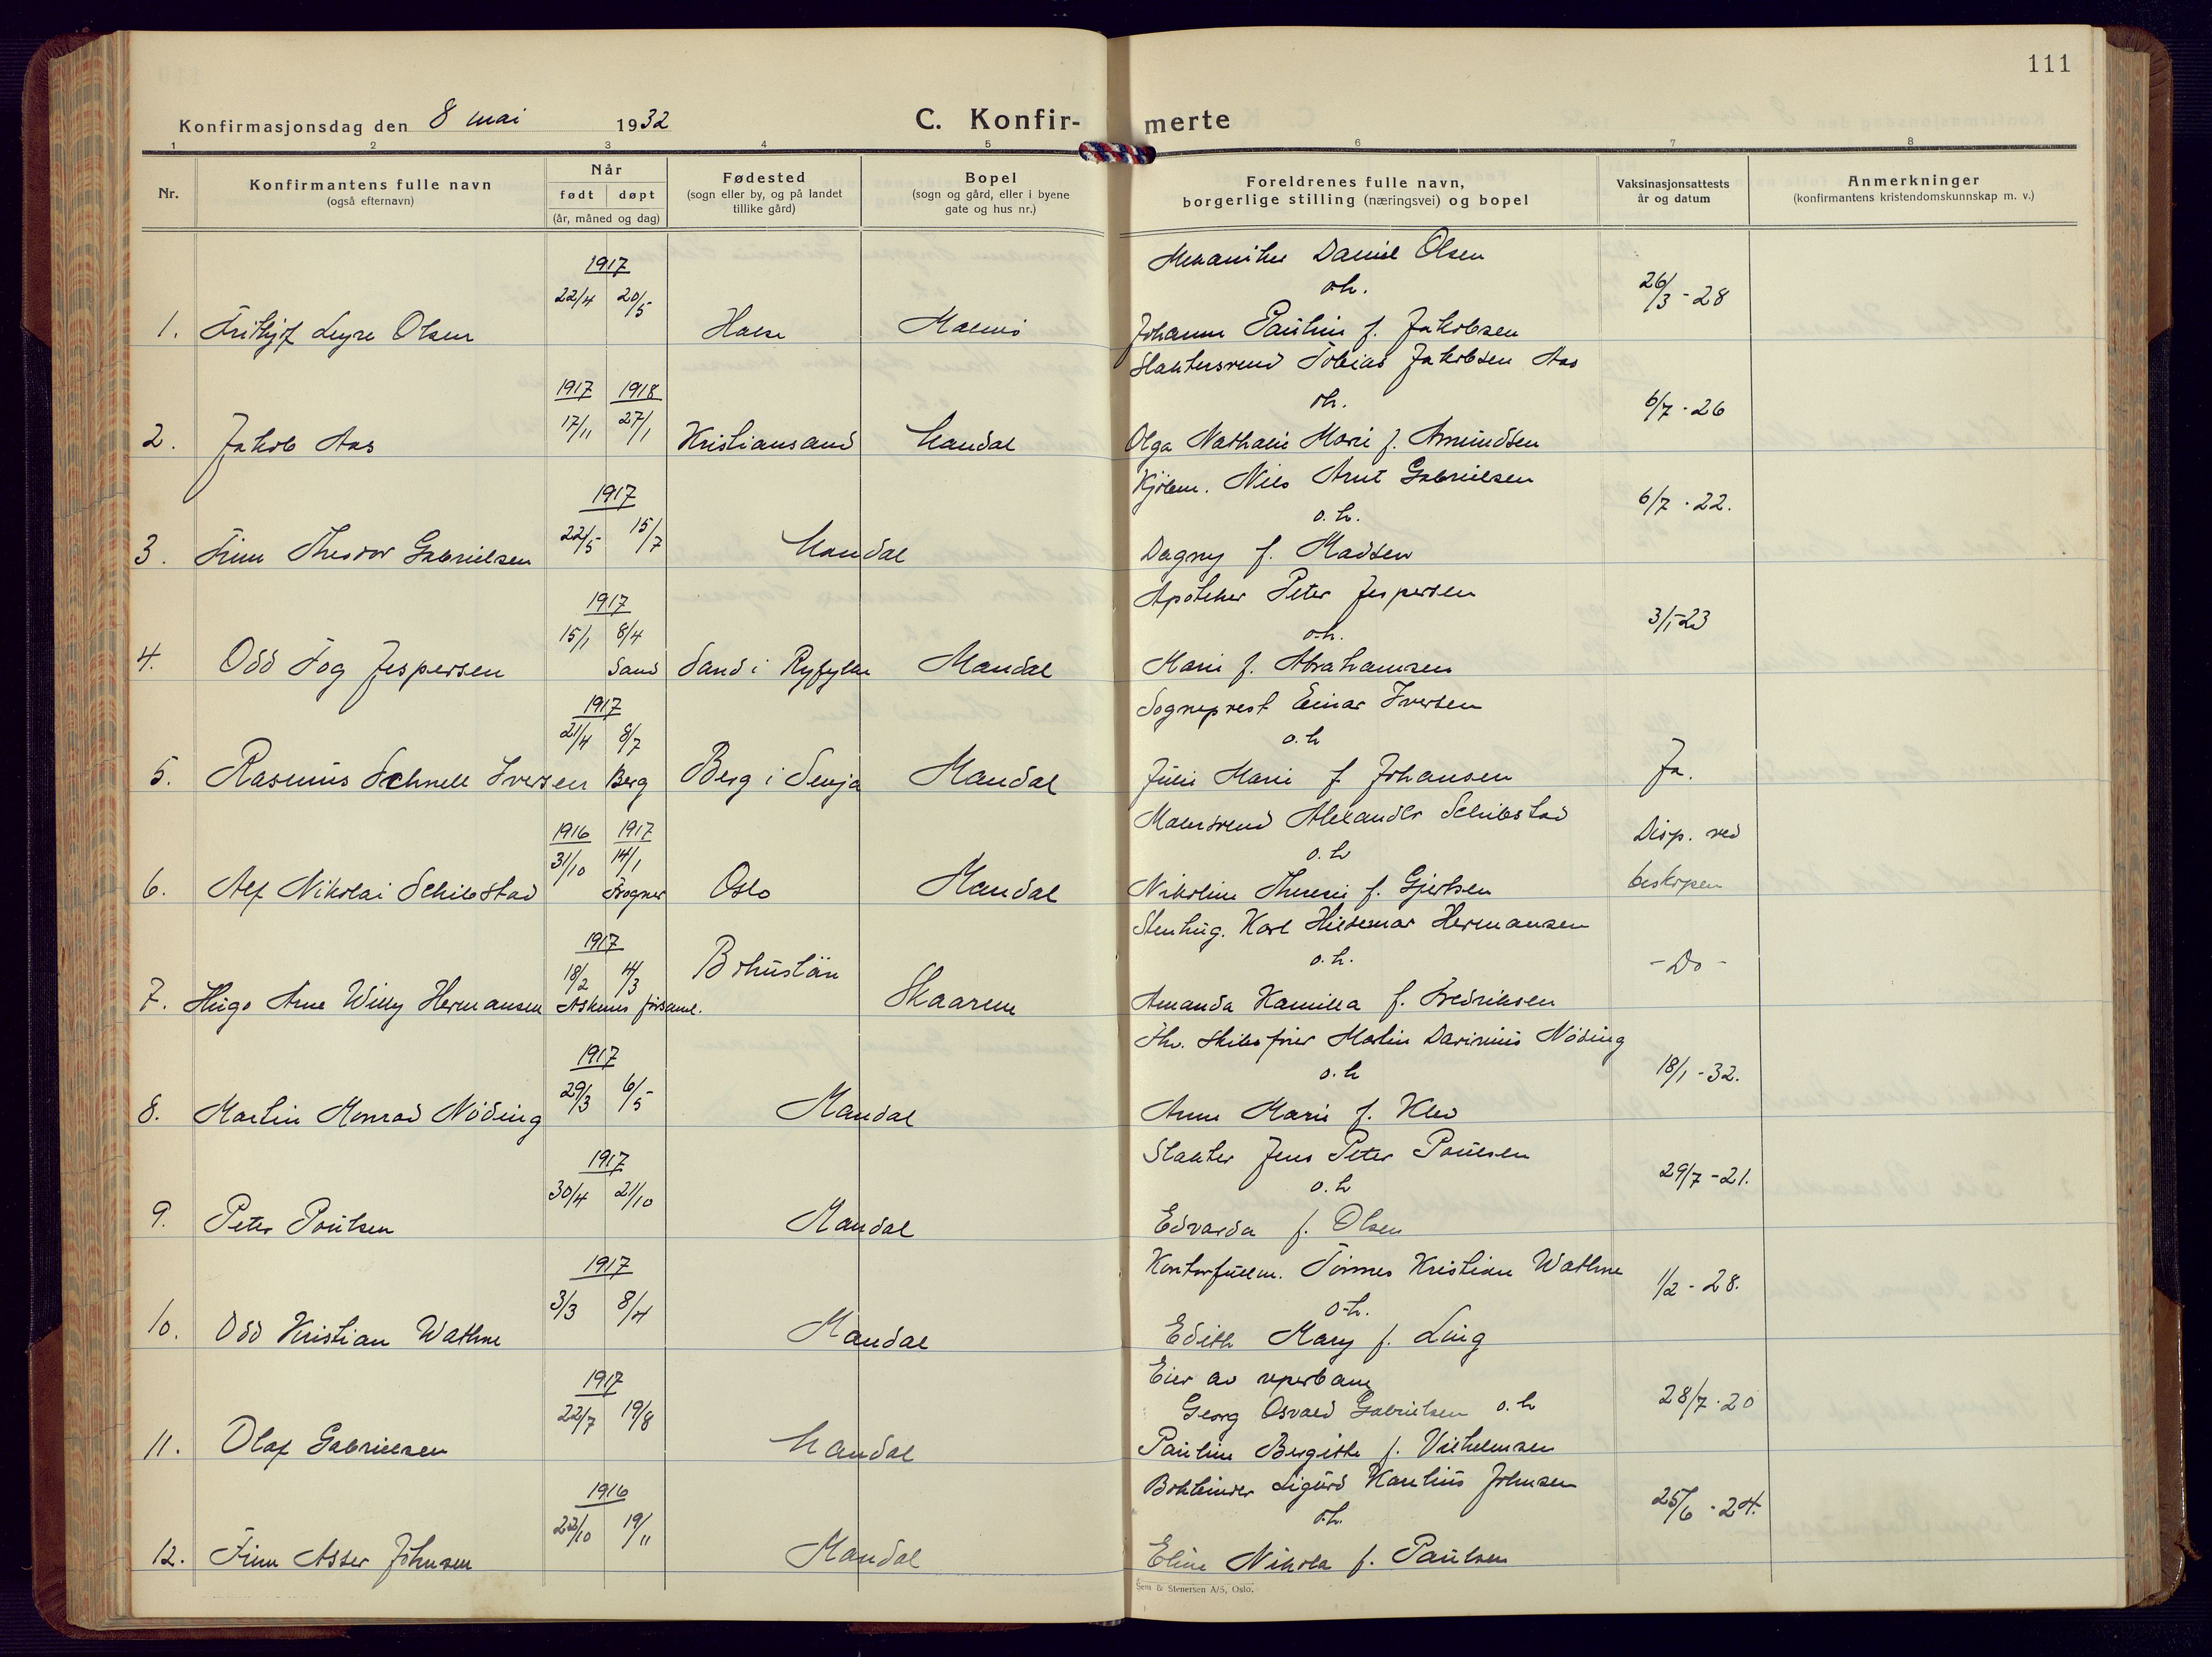 111
Konfirmasjonsdag den 8 mai 1932
C. Konfir-merte
1 2 3 4 5 6 7 8
Nr.
Konfirmantens fulle navn
(også efternavn)
Når
født døpt
(år, måned og dag)
Fødested
(sogn eller by, og på landet
tillike gård)
Bopel
(sogn og gård, eller i byene
gate og hus nr.)
Foreldrenes fulle navn,
borgerlige stilling (næringsvei) og bopel
Vaksinasjonsattests
år og datum
Anmerkninger
(konfirmantens kristendomskunnskap m. v.)
1917
22/4 20/5
1. Olsen Halse Malmø
Mekaniker Daniel Olsen
o.h.
Johanne Pauline f. Jakobsen
26/3 - 28
1917 1918
17/11 27/1
2. Jakob Aas Kristiansand Mandal
Slaktersvend Tobias Jakobsen Aas
o.h.
Olga Nathalie Marie f. Amundsen
6/7 - 26
1917
22/5 15/7
3. Finn Theodor Gabrielsen Mandal
Kjølem. Nils Arnt Gabrielsen
o. h.
Dagny f. Madsen
6/7 - 22.
1917
15/1 8/4
4. Odd Tog Jespersen Sand Sand i Ryfylke Mandal
Apoteker Peter Jespersen
o.h.
Marie f. Abrahamsen
3/1-23
1917
21/4 8/7
5. Rasmus Schnell Iversen Berg Berg i Senja Mandal
Sogneprest Einar Iversen
o. h
Julie Marie f. Johansen
Ja.
1916 1917
31/10 14/1
6. Alf Nikolai Schibstad Frogner Oslo Mandal
Malersvend Alexander Schibstad
o. h
Nikoline Theresie f. Gjertsen
Disp. ved
biskopen
1917
18/2 14/3
7. Hugo Arne Willy Hermansen Askums församl. Bohuslän Skaaren
Stenhug. Karl Hildemar Hermansen
o. h.
Amanda Kamilla f. Fredriksen
- Do -
1917
29/3 6/5
8. Martin Monrad Nøding Mandal
Fhv. Skibsfører Martin Nøding
o. h
Anne Marie f. Klev
18/1 - 32.
1917
30/4 21/10
9. Peter Poulsen Mandal
Slakter Jens Peter Poulsen
o. h
Edvarda f. Olsen
29/7 - 21.
1917
3/3 8/4
10. Odd Kristian Wathne Mandal
Kontorfullm. Tønnes Kristian Wathne
o.h.
Edith Mary f. Ling
1/2 - 28.
1917
22/7 19/8
11. Olaf Gabrielsen Mandal
Eier av reperbane
Georg Osvald Gabrielsen o. h
Pauline Bergitte f. Vilhelmsen
28/7 - 20
1916
22/10 19/11
12. Finn Asser Johnsen Mandal
Bokbinder Sigurd Karelius Johnsen
o.h.
Eline Nikola f. Paulsen
25/6 - 24.
Sem & Stenersen A/S, Oslo.